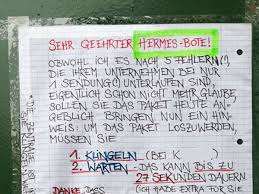 SEHR GEEHRTER HERMES-BOTE!
OBWOHL ICH ES NACH 5 FEHLERN (!),
DIE IHREM UNTERNEHMEN BEI NUR
1 SENDUNG (!) UNTERLAUFEN SIND,
EIGENTLICH SCHON NICHT MEHR GLAUBE,
SOLLEN SIE DAS PAKET HEUTE AN-
GEBLICH BRINGEN. NUN EIN HIN-
WEIS: UM DAS PAKET LOSZUWERDEN,
MÜSSEN SIE
1. KLINGELN (BEI K
2. WARTEN - DAS KANN BIS ZU
27 SEKUNDEN DAUERN.
DANKE, DASS (ICH HABE EXTRA FÜR SIE